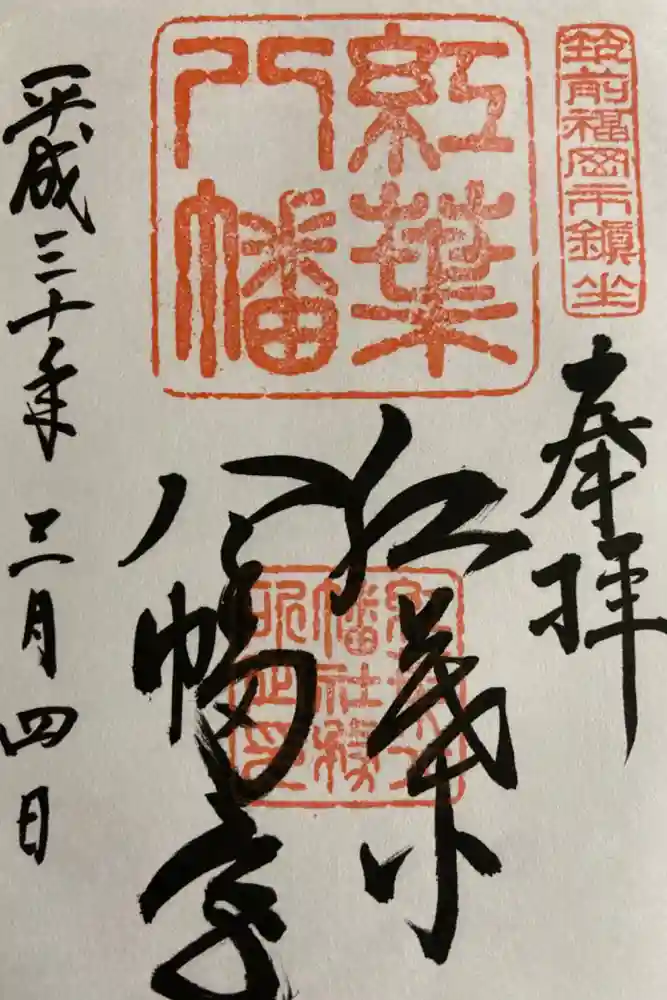 筑前福岡市鎮坐
奉拝
紅葉
八幡
紅葉
八幡宮
紅葉八
幡社務
所之印
平成三十年三月四日